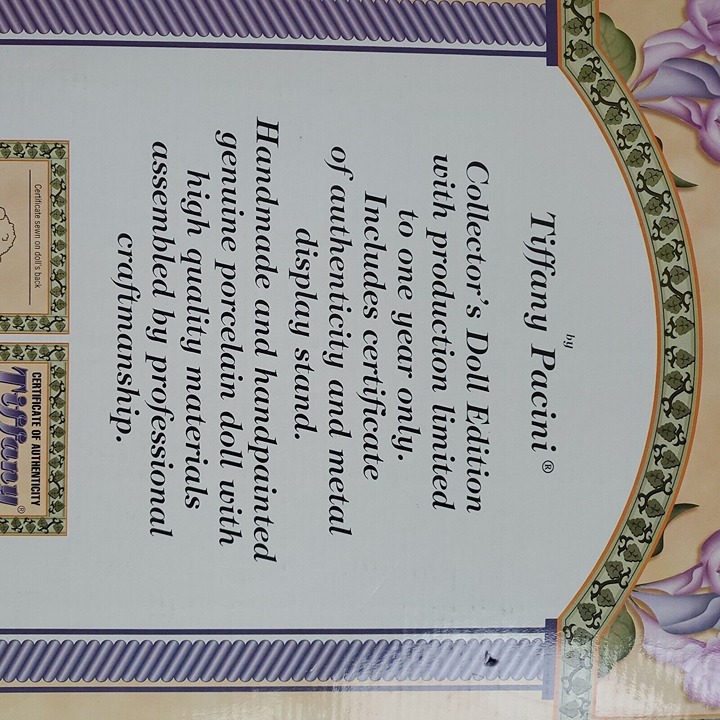 by
Tiffany Pacini ®
Collector's Doll Edition
with production limited
to one year only.
Includes certificate
of authenticity and metal
display stand.
Handmade and handpainted
genuine porcelain doll with
high quality materials
assembled by professional
craftmanship.
Certificate sewn on doll's back
CERTIFICATE OF AUTHENTICITY
Tiffany ®